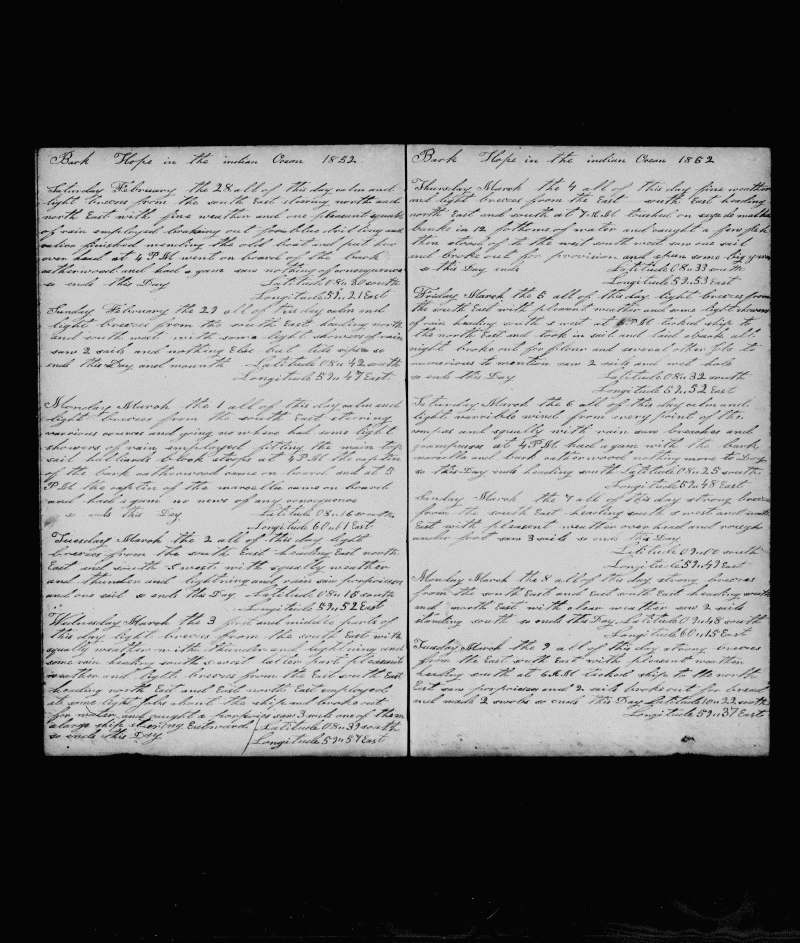 Bark Hope in the indian Ocean 1852
Saturday February the 28 all of this day calm and
light breezes from the south East steering north and
north East with fine weather and one pleasent squale
of rain employed breaking out for
finished mending the old boat and put her
over head at 4 PM went on board of the bark
and had a gam saw nothing of consequence
so ends this Day Latitude 08 n 30 south
Longitude 59 n 21 East
Sunday February the 29 all of this day calm and
light breezes from the south East heading north
and south west with some light showers of rain
saw 2 sails and nothing Else but
ends this Day and mounth Latitude 08 n 42 south
Longitude 59 n 47 East
Monday March the 1 all of this day calm and
light breezes from the south East stering
various courses and going no where had some light
showers of rain employed fitting the main top
sail block strops at 4 PM the captin
of the bark catherwood came on board and at 5
PM the captin of the marcella came on board
and had a gam no news of any concequence
so ends this Day Latitude 08 n 16 south
Longitude 60 n 01 East
Tuesday March the 2 all of this day light
breezes from the south East heading East north
East and south S west with squally weather
and thunder and lightning and rain saw porpoises
and one sail so ends the Day Latitude 08 n 15 south
Longitude 59 n 52 East
Wednesday March the 3 first and middle parts of
this day light breezes from the south East with
squally weather with thunder and lightning and
some rain heading south S west latter part pleasant
weather and light breezes from the East south East
heading north East and East north East employed
at some light jobs about the ship and broke out
for water and caught a porpoies saw 3 sails one of them
a large ship stering Eastward Latitude 08 n 33 south
so ends this Day Longitude 59 n 57 East
Bark Hope in the indian Ocean 1852
Thursday March the 4 all of this day fine weather
and light breezes from the south East heading
north East and south at 7 AM touched on
banks in 12 fathoms of water and caught a few fish
then stood of to the west south west saw one sail
and broke out for provision and spun some
so this Day ends Latitude 08 n 33 south
Longitude 59 n 53 East
Friday March the 5 all of this day light breezes from
the south East with pleasent weather and some light showers
of rain heading south S west at PM tacked ship to
the north East and took in sail and laid aback all
night broke out for flour and several other jobs to
numerious to mention saw 2 sails
so ends this Day Latitude 08 n 32 south
Longitude 59 n 52 East
Saturday March the 6 all of this day calm and
light varible winds from every point of the
compas and squally with rain saw breaches and
grampuses at 4 PM had a gam with the bark
marcella and bark catherwood nothing more to Day
so this Day ends heading south Latitude 08 n 25 south
Longitude 59 n 48 East
Sunday March the 7 all of this day strong breezes
from the south East heading south S west and south
East with pleasent weather over head and rough
under foot saw 3 sails so ends this Day
Latitude 09 n 02 south
Longitude 59 n 49 East
Monday March the 8 all of the day strong breezes
from the south East and East south East heading south
and north East with clear weather saw 2 sails
standing south so ends this Day Latitude 09 n 48 south
Longitude 60 n 15 East
Tuesday March the 9 all of this day strong breezes
from the East south East with pleasent weather
heading south at 6 AM tacked ship to the north
East saw porpoises and 2 sails broke out for bread
and made 2 swobs so ends this Day Latitude 10 n 22 south
Longitude 59 n 37 East